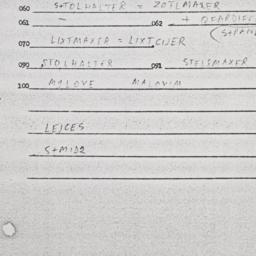 060 STOLHALTER = ZOTLMAXER
061 - 062 + QUARDIER
(S+PAN
070 LIXTMAXER = LIXTCIJER
090 STOLHALTER 091 STELSMAXER
100 MALOVE MALOVIM
LEJCES
S+MIDR